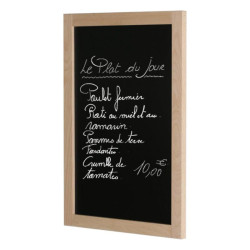 Le Plat du Jour
Poulet fumier
Roti au miel d'au
romarin
Pommes de terre
Fondantes
Crumble de
tomates 10,00 €